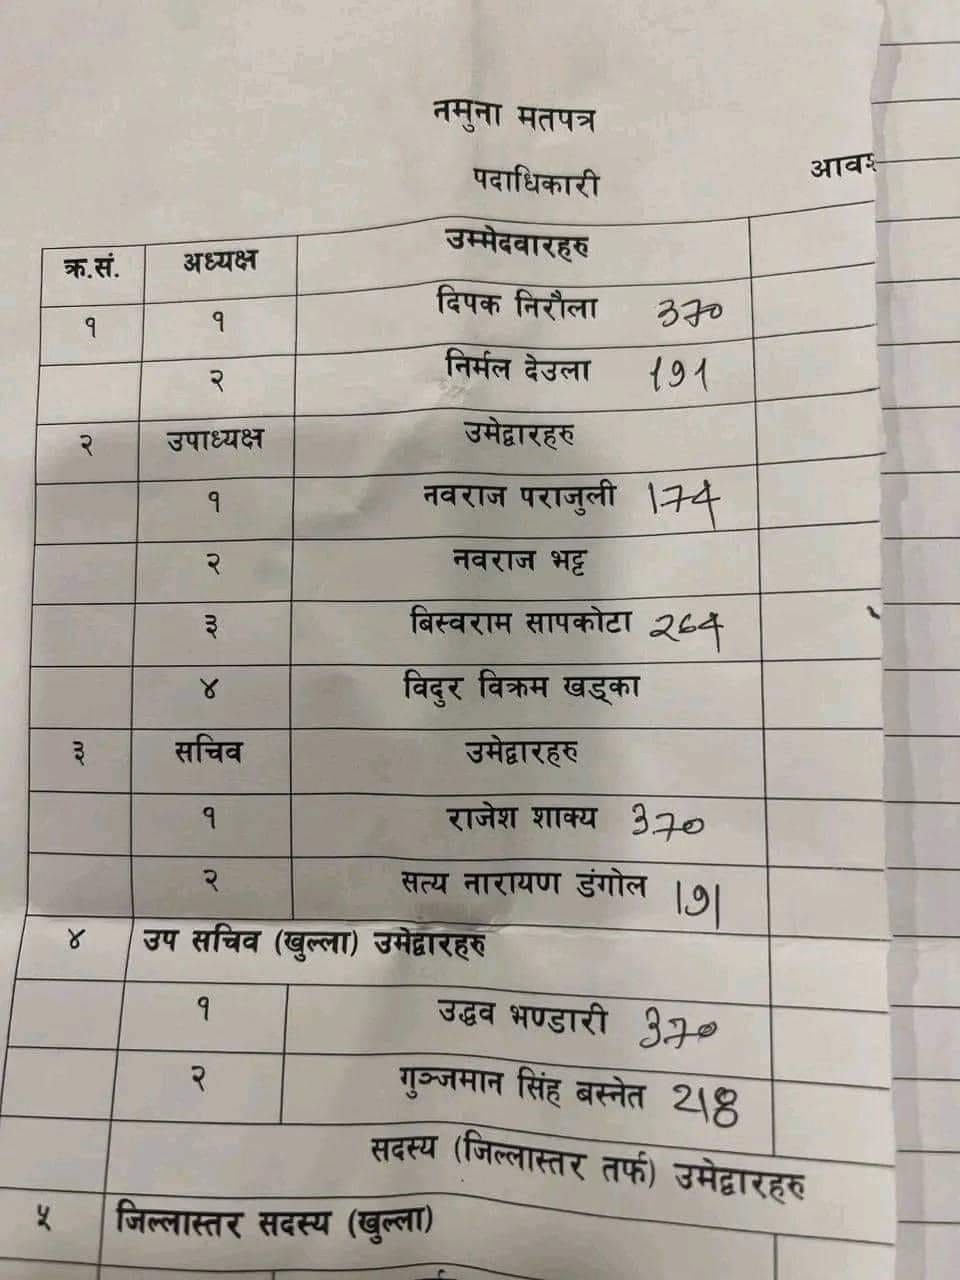 नमुना मतपत्र
पदाधिकारी
क्र.सं. अध्यक्ष उम्मेदवारहरु
१ १ दिपक निरौला 370
२ निर्मल देउला 191
२ उपाध्यक्ष उमेद्वारहरु
१ नवराज पराजुली 174
२ नवराज भट्ट
३ बिस्वराम सापकोटा 264
४ विदुर विक्रम खड्का
३ सचिव उमेद्वारहरु
१ राजेश शाक्य 370
२ सत्य नारायण डंगोल 191
४ उप सचिव (खुल्ला) उमेद्वारहरु
१ उद्धव भण्डारी 370
२ गुञ्जमान सिंह बस्नेत 218
सदस्य (जिल्लास्तर तर्फ) उमेद्वारहरु
५ जिल्लास्तर सदस्य (खुल्ला)